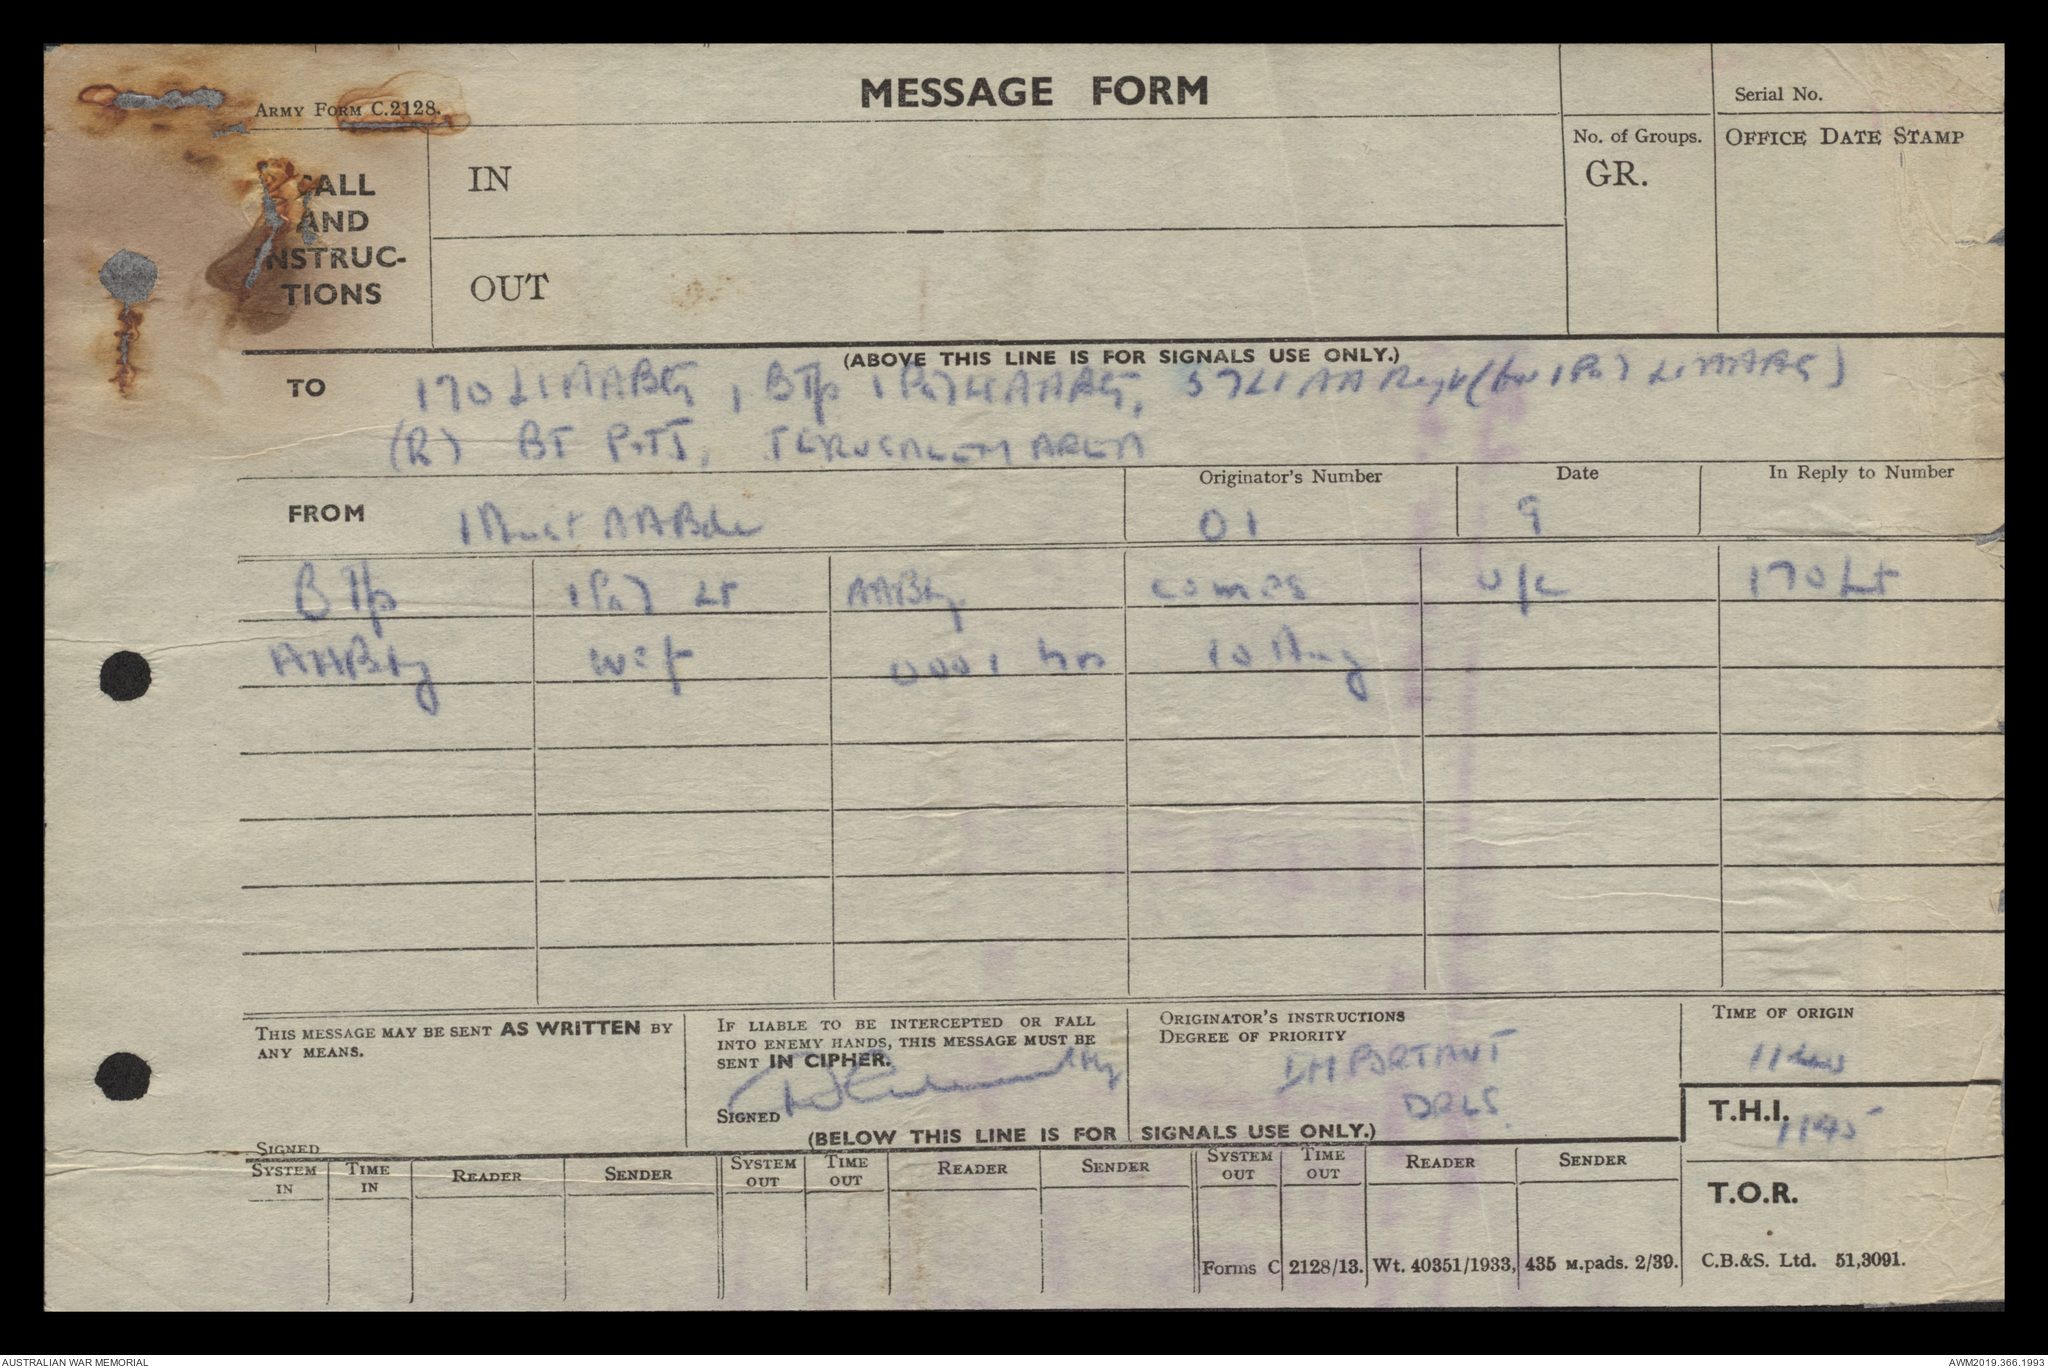 MESSAGE FORM
ARMY FORM C.2128.
Serial No.
No. of Groups.
GR.
OFFICE DATE STAMP
CALL
AND
INSTRUC-
TIONS
IN
OUT
(ABOVE THIS LINE IS FOR SIGNALS USE ONLY.)
TO 170 Lt AA Bty, B Tp 1 Pal Lt AA Bty, 57 Lt AA Regt (for 1 Pal Lt AA Bty)
(R) BT JERUSALEM AREA
FROM 1 Aust AA Bde
Originator's Number 01
Date 9
In Reply to Number
B Tp 1 Pal Lt AA Bty comes u/c 170 Lt
AA Bty wef 0001 hrs 10 Aug
THIS MESSAGE MAY BE SENT AS WRITTEN BY
ANY MEANS.
SIGNED
IF LIABLE TO BE INTERCEPTED OR FALL
INTO ENEMY HANDS, THIS MESSAGE MUST BE
SENT IN CIPHER.
SIGNED
ORIGINATOR'S INSTRUCTIONS
DEGREE OF PRIORITY
IMPORTANT
DRLS.
TIME OF ORIGIN
T.H.I.
1145
(BELOW THIS LINE IS FOR SIGNALS USE ONLY.)
SYSTEM IN TIME IN READER SENDER SYSTEM OUT TIME OUT READER SENDER SYSTEM OUT TIME OUT READER SENDER
T.O.R.
Forms C 2128/13. Wt. 40351/1933, 435 M.pads. 2/39. C.B.&S. Ltd. 51,3091.
AUSTRALIAN WAR MEMORIAL
AWM2019.366.1993